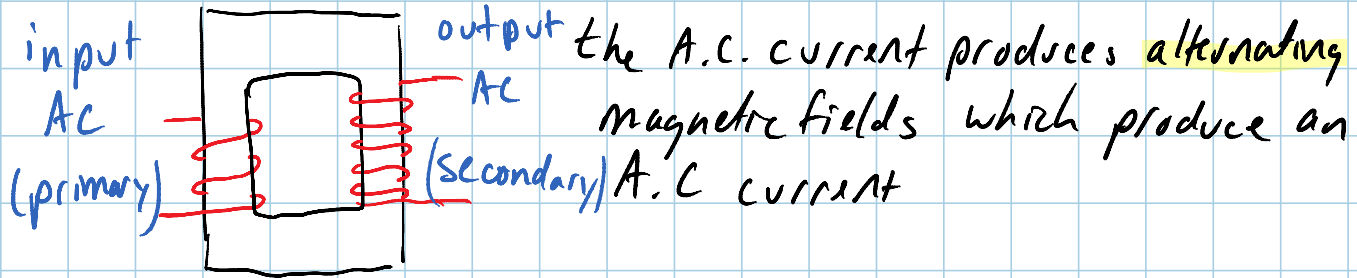 input
AC
(primary)
output
AC
(secondary)
the A.C. current produces alternating
magnetic fields which produce an
A.C current